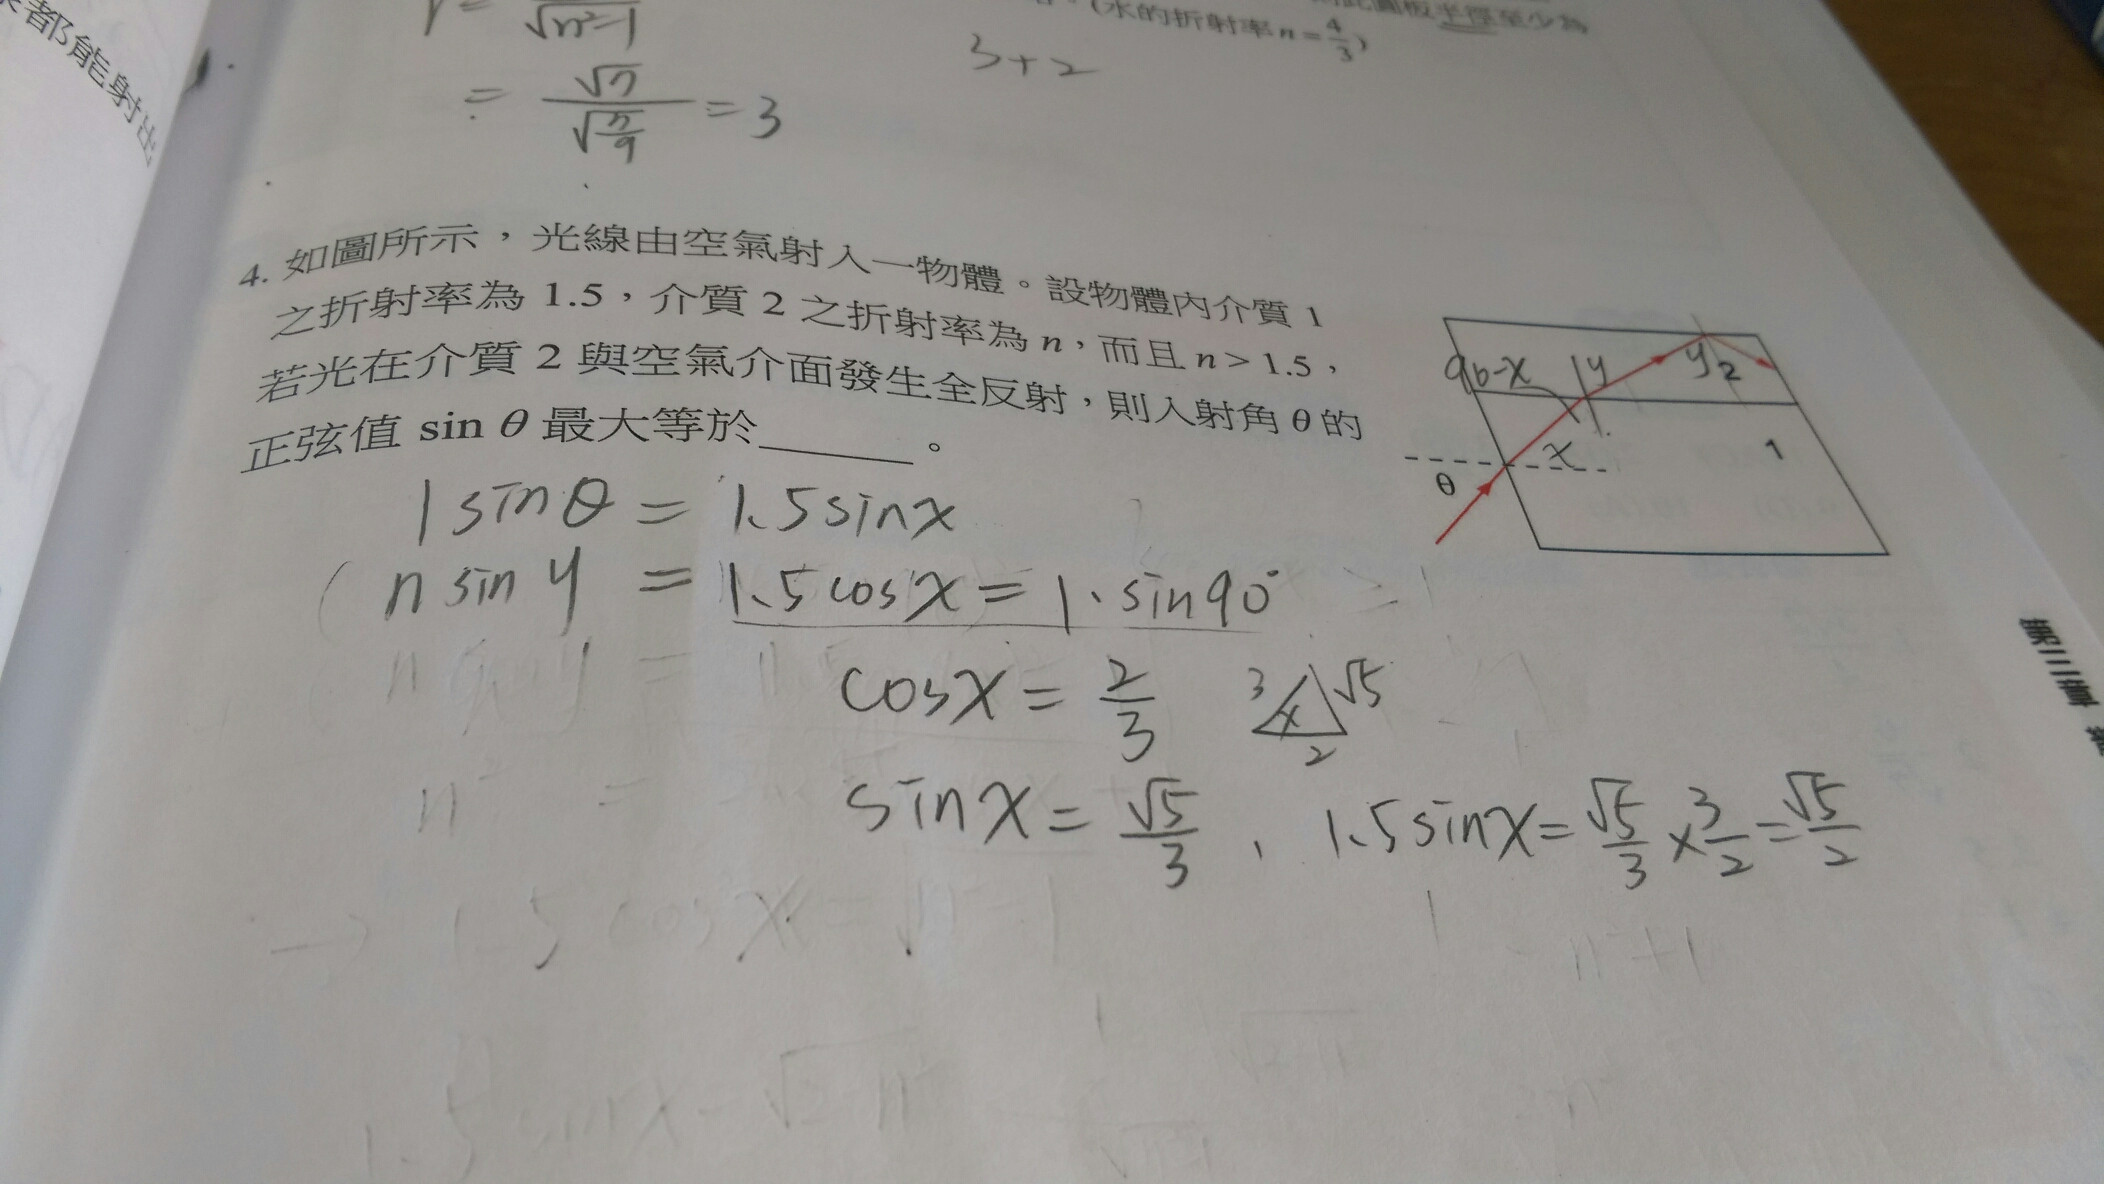 都能射出
r = 1/√n²-1
(水的折射率 n = 4/3)
3+2
= √7/√(7/9) = 3
4. 如圖所示，光線由空氣射入一物體。設物體內介質 1
之折射率為 1.5，介質 2 之折射率為 n，而且 n > 1.5，
若光在介質 2 與空氣介面發生全反射，則入射角 θ 的
正弦值 sin θ 最大等於______。
90-x y y 2
x 1
θ
1 sinθ = 1.5 sinx
( n sin y = 1.5 cosx = 1. sin90°
cosx = 2/3 3 x √5 2
sinx = √5/3 , 1.5 sinx = √5/3 × 3/2 = √5/2
第三章